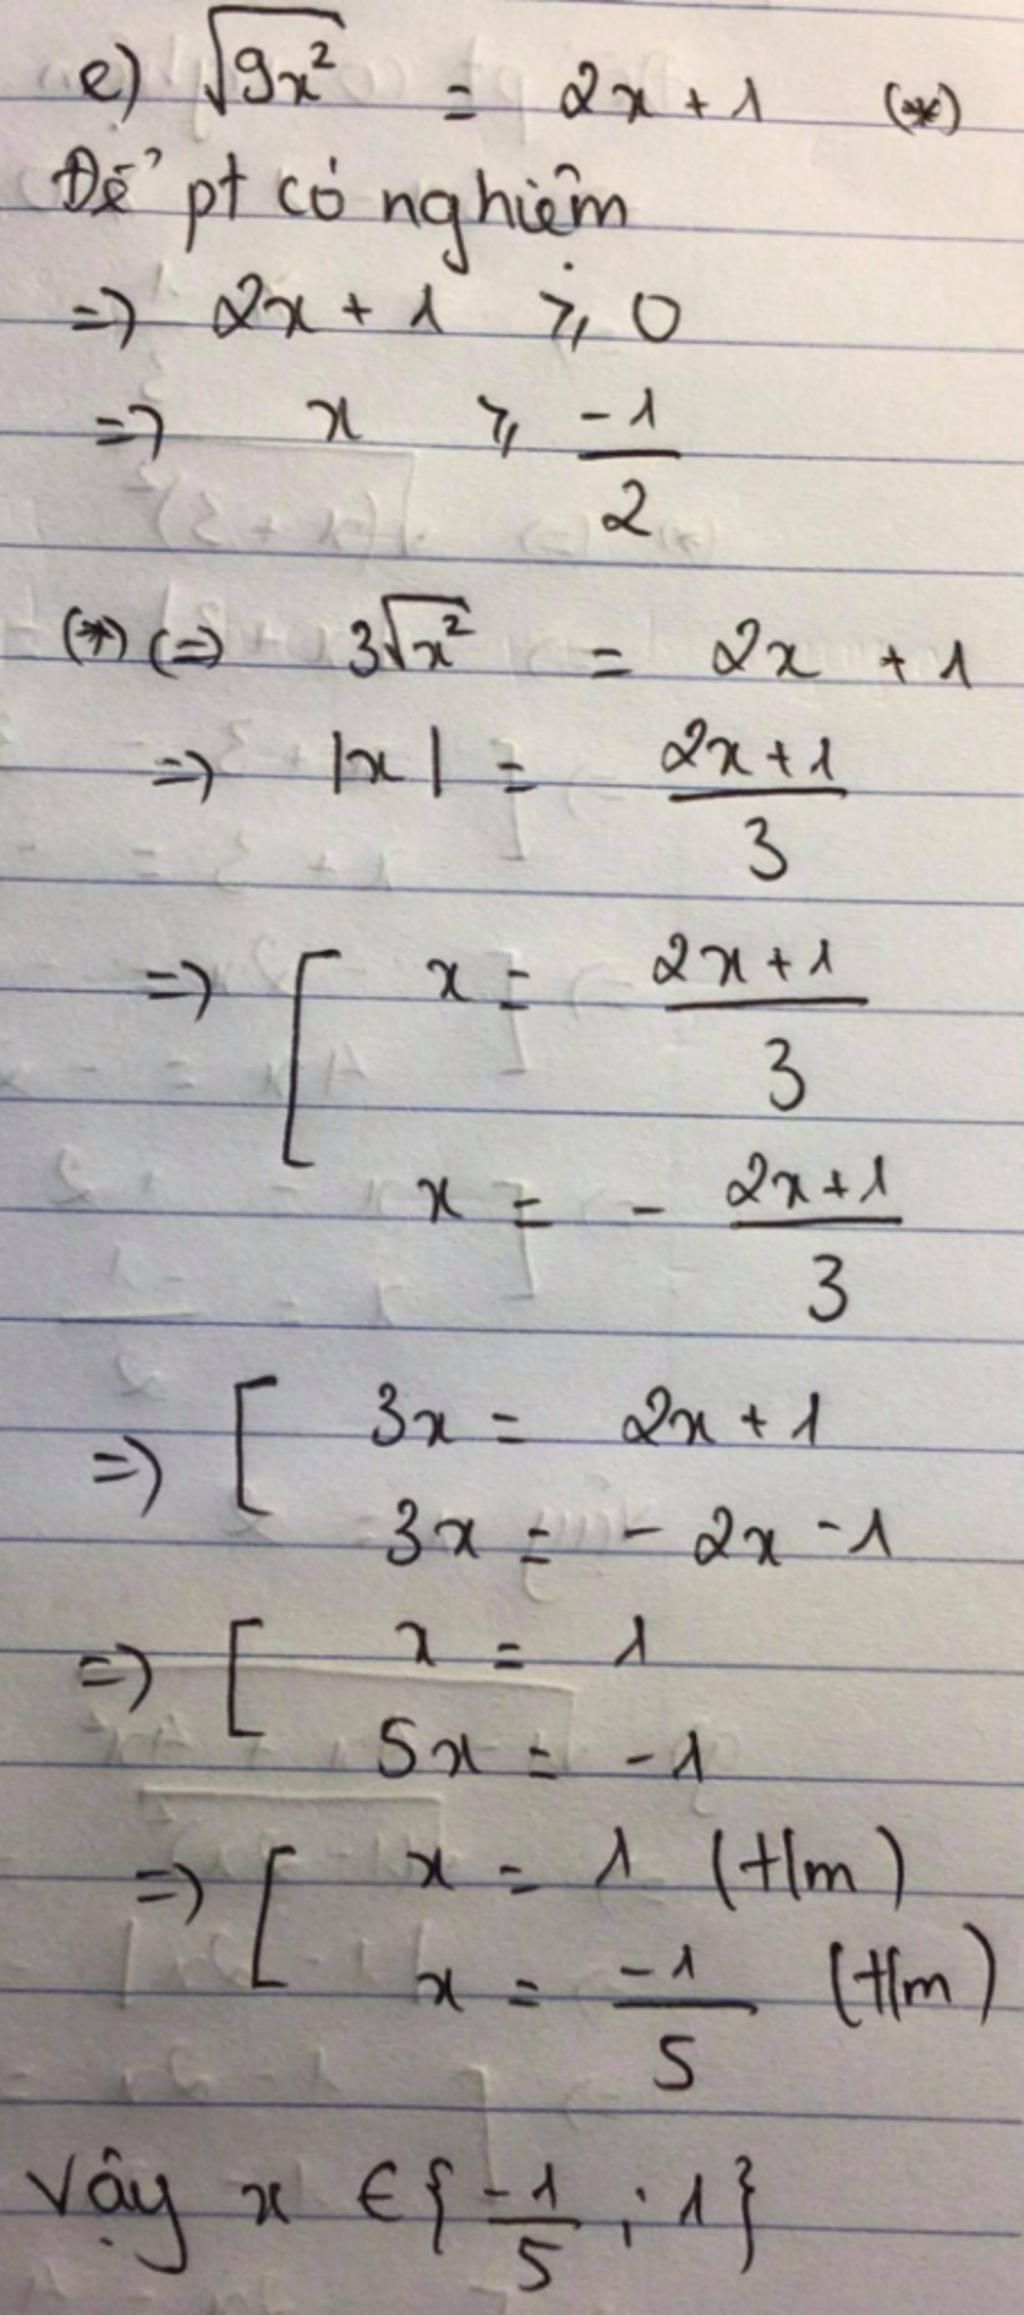 e) √9x² = 2x + 1 (*)
Để pt có nghiệm
=> 2x + 1 ⩾ 0
=> x ⩾ -1/2
(*) (=) 3√x² = 2x + 1
=> |x| = (2x+1)/3
=> [ x = (2x+1)/3
x = - (2x+1)/3
=> [ 3x = 2x + 1
3x = - 2x - 1
=> [ x = 1
5x = - 1
=> [ x = 1 (t/m)
x = -1/5 (t/m)
Vậy x ∈ { -1/5 ; 1 }